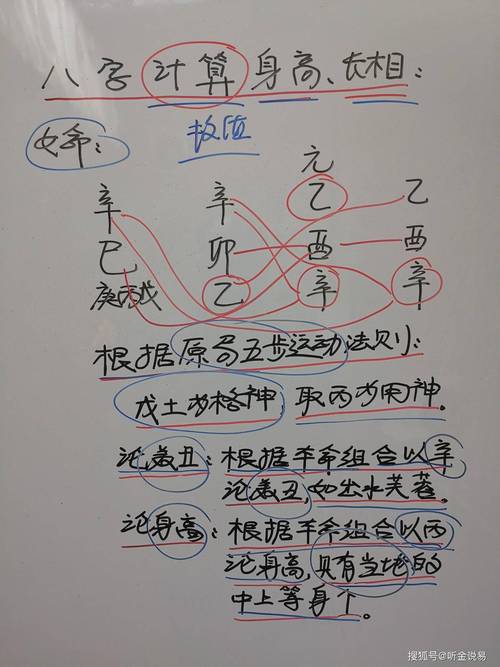 八字计算身高、长相：
数值
女命：
元
辛 辛 乙 乙
巳 卯 酉 酉
庚丙戊 乙 辛 辛
根据原命五步运动法则：
戊土为格神，取丙为用神。
论美丑：根据本命组合以辛
论美丑，如出水芙蓉。
论身高：根据本命组合以丙
论身高，只有当地的
中上等身个。
搜狐号@听金说易